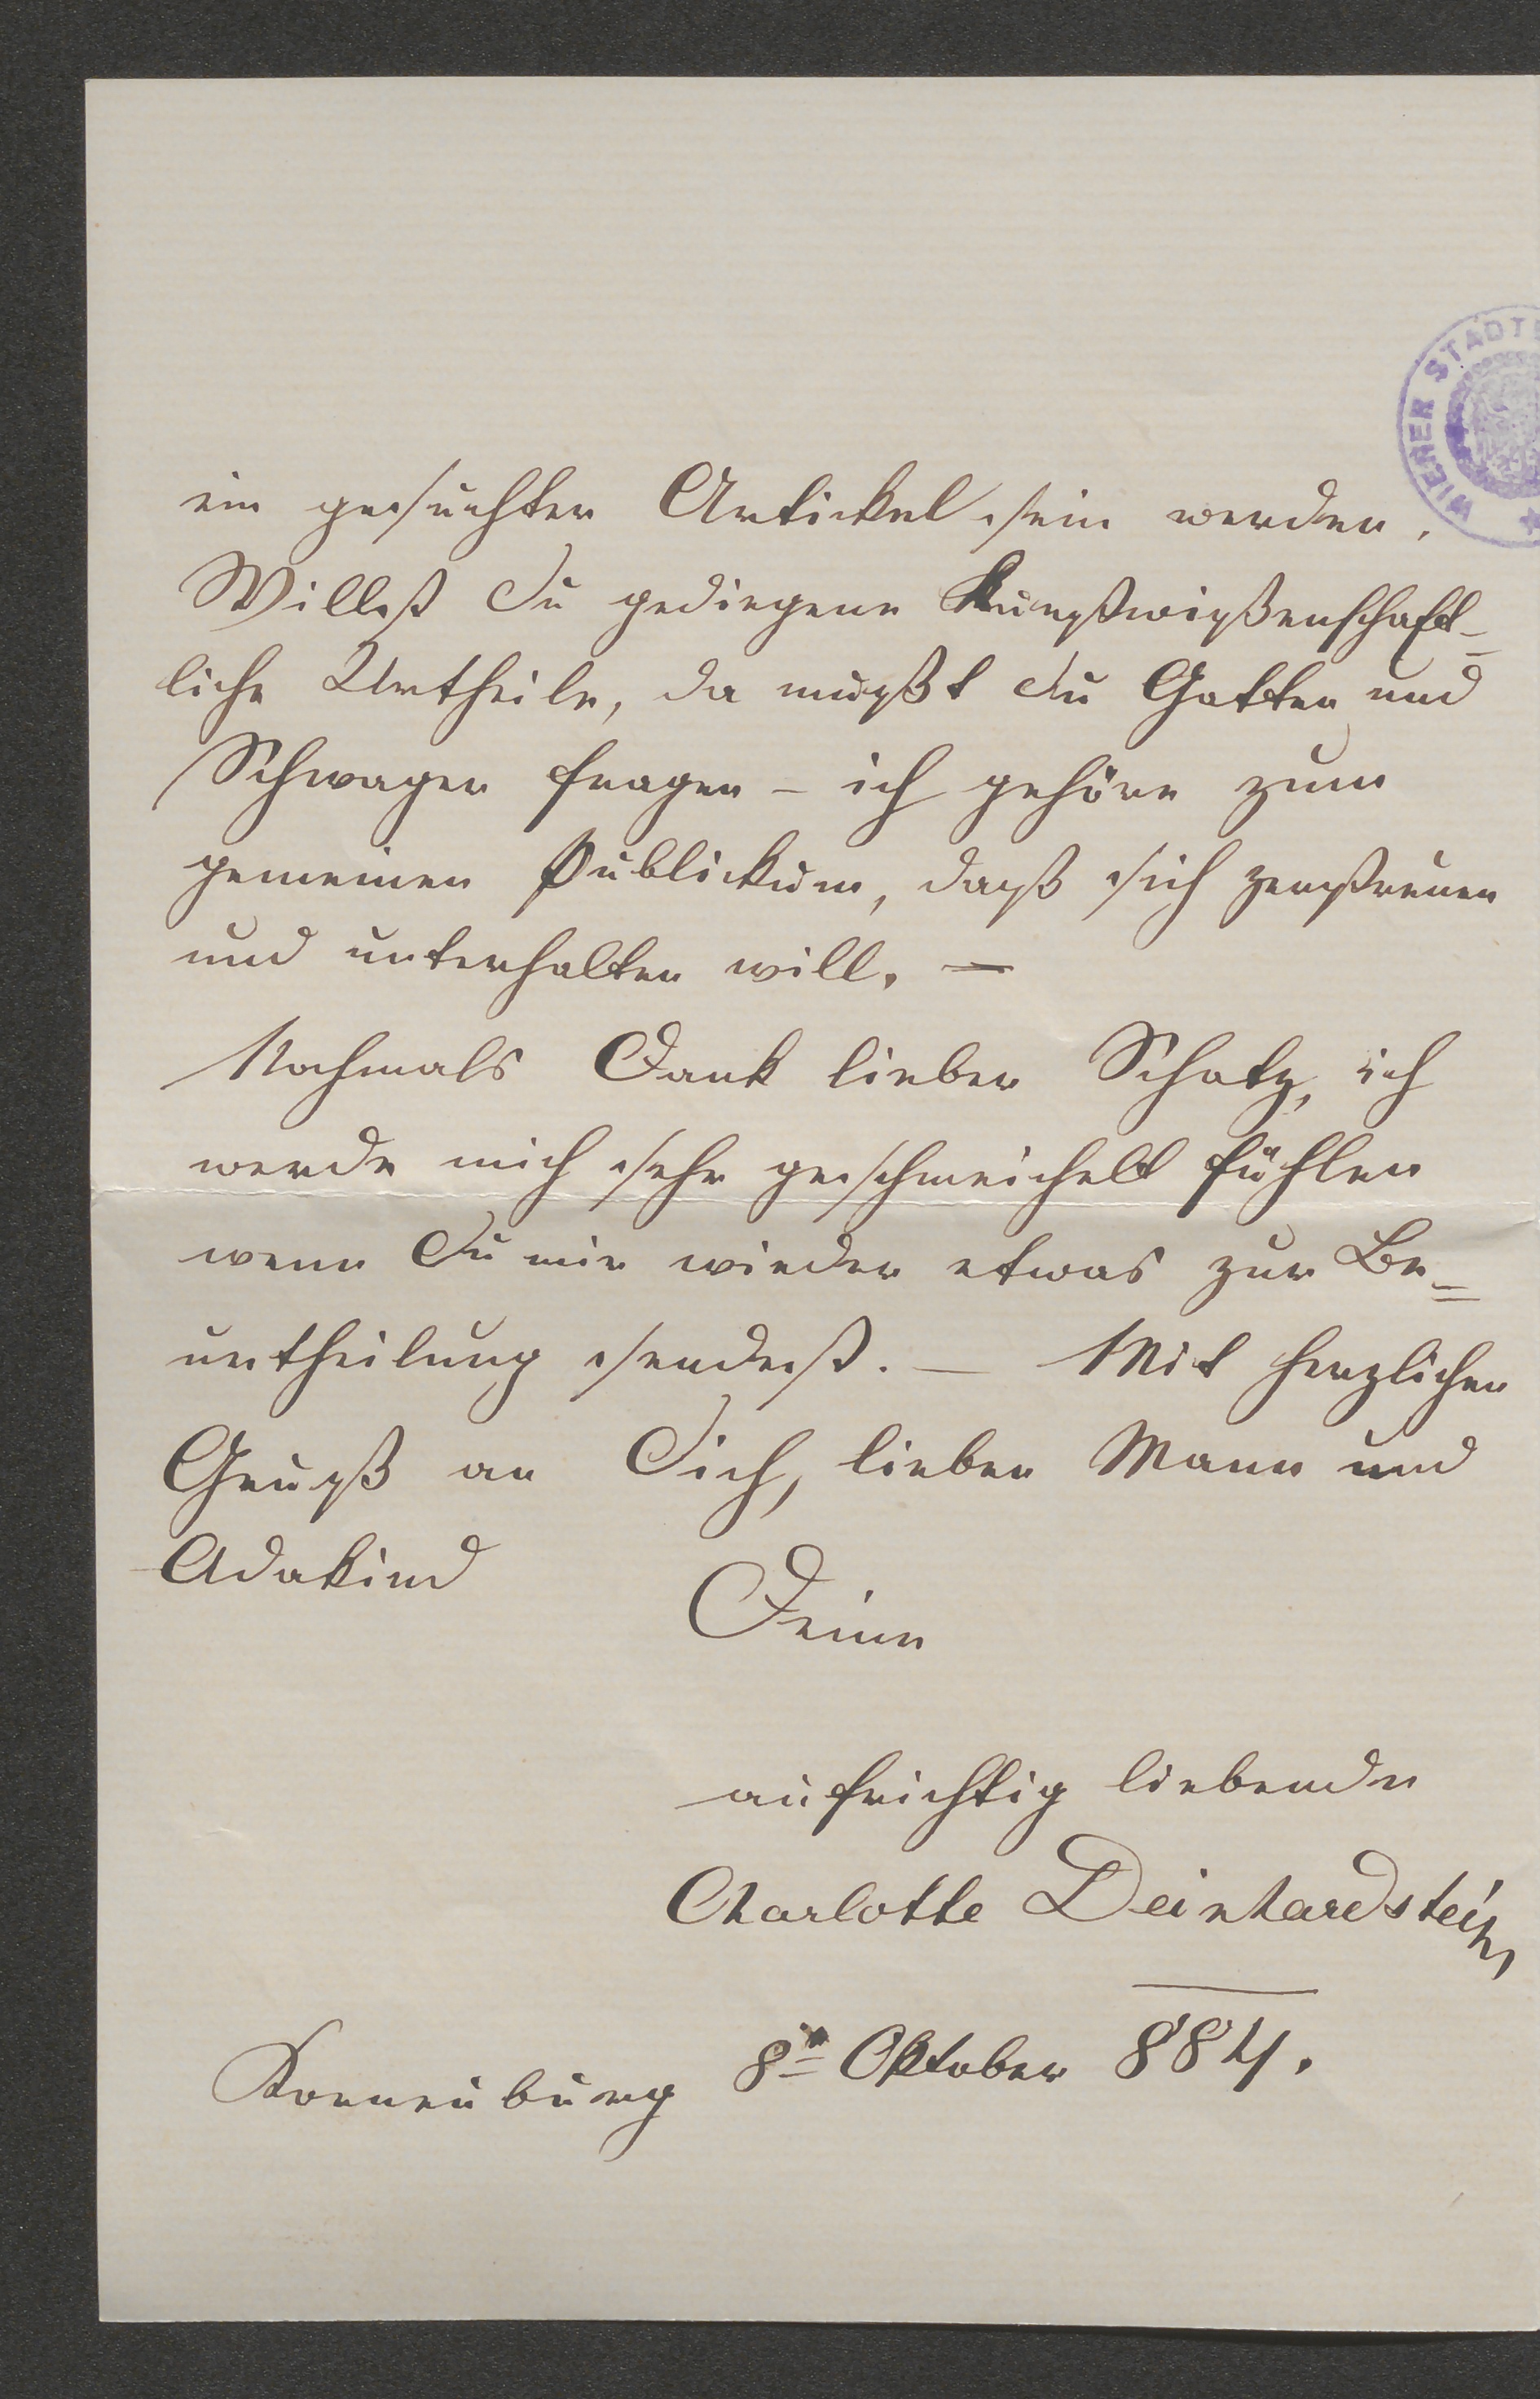 WIENER STADT
ein gesuchter Artickel sein werden.
Willst Du gediegene Kunstwißenschaft-
liche Urtheile, da mußt Du Gatten und
Schwager fragen – ich gehöre zum
gemeinen Publickum, daß sich zerstreuen
und unterhalten will. –
Nochmals Dank lieber Schatz, ich
werde mich sehr geschmeichelt fühlen
wenn Du mir wieder etwas zur Be=
urtheilung sendest. – Mit herzlichen
Gruß an Dich, lieben Mann und
Adakind
Deine
aufrichtig liebende
Charlotte Deinhardstein
Korneuburg 8t Oktober 884.